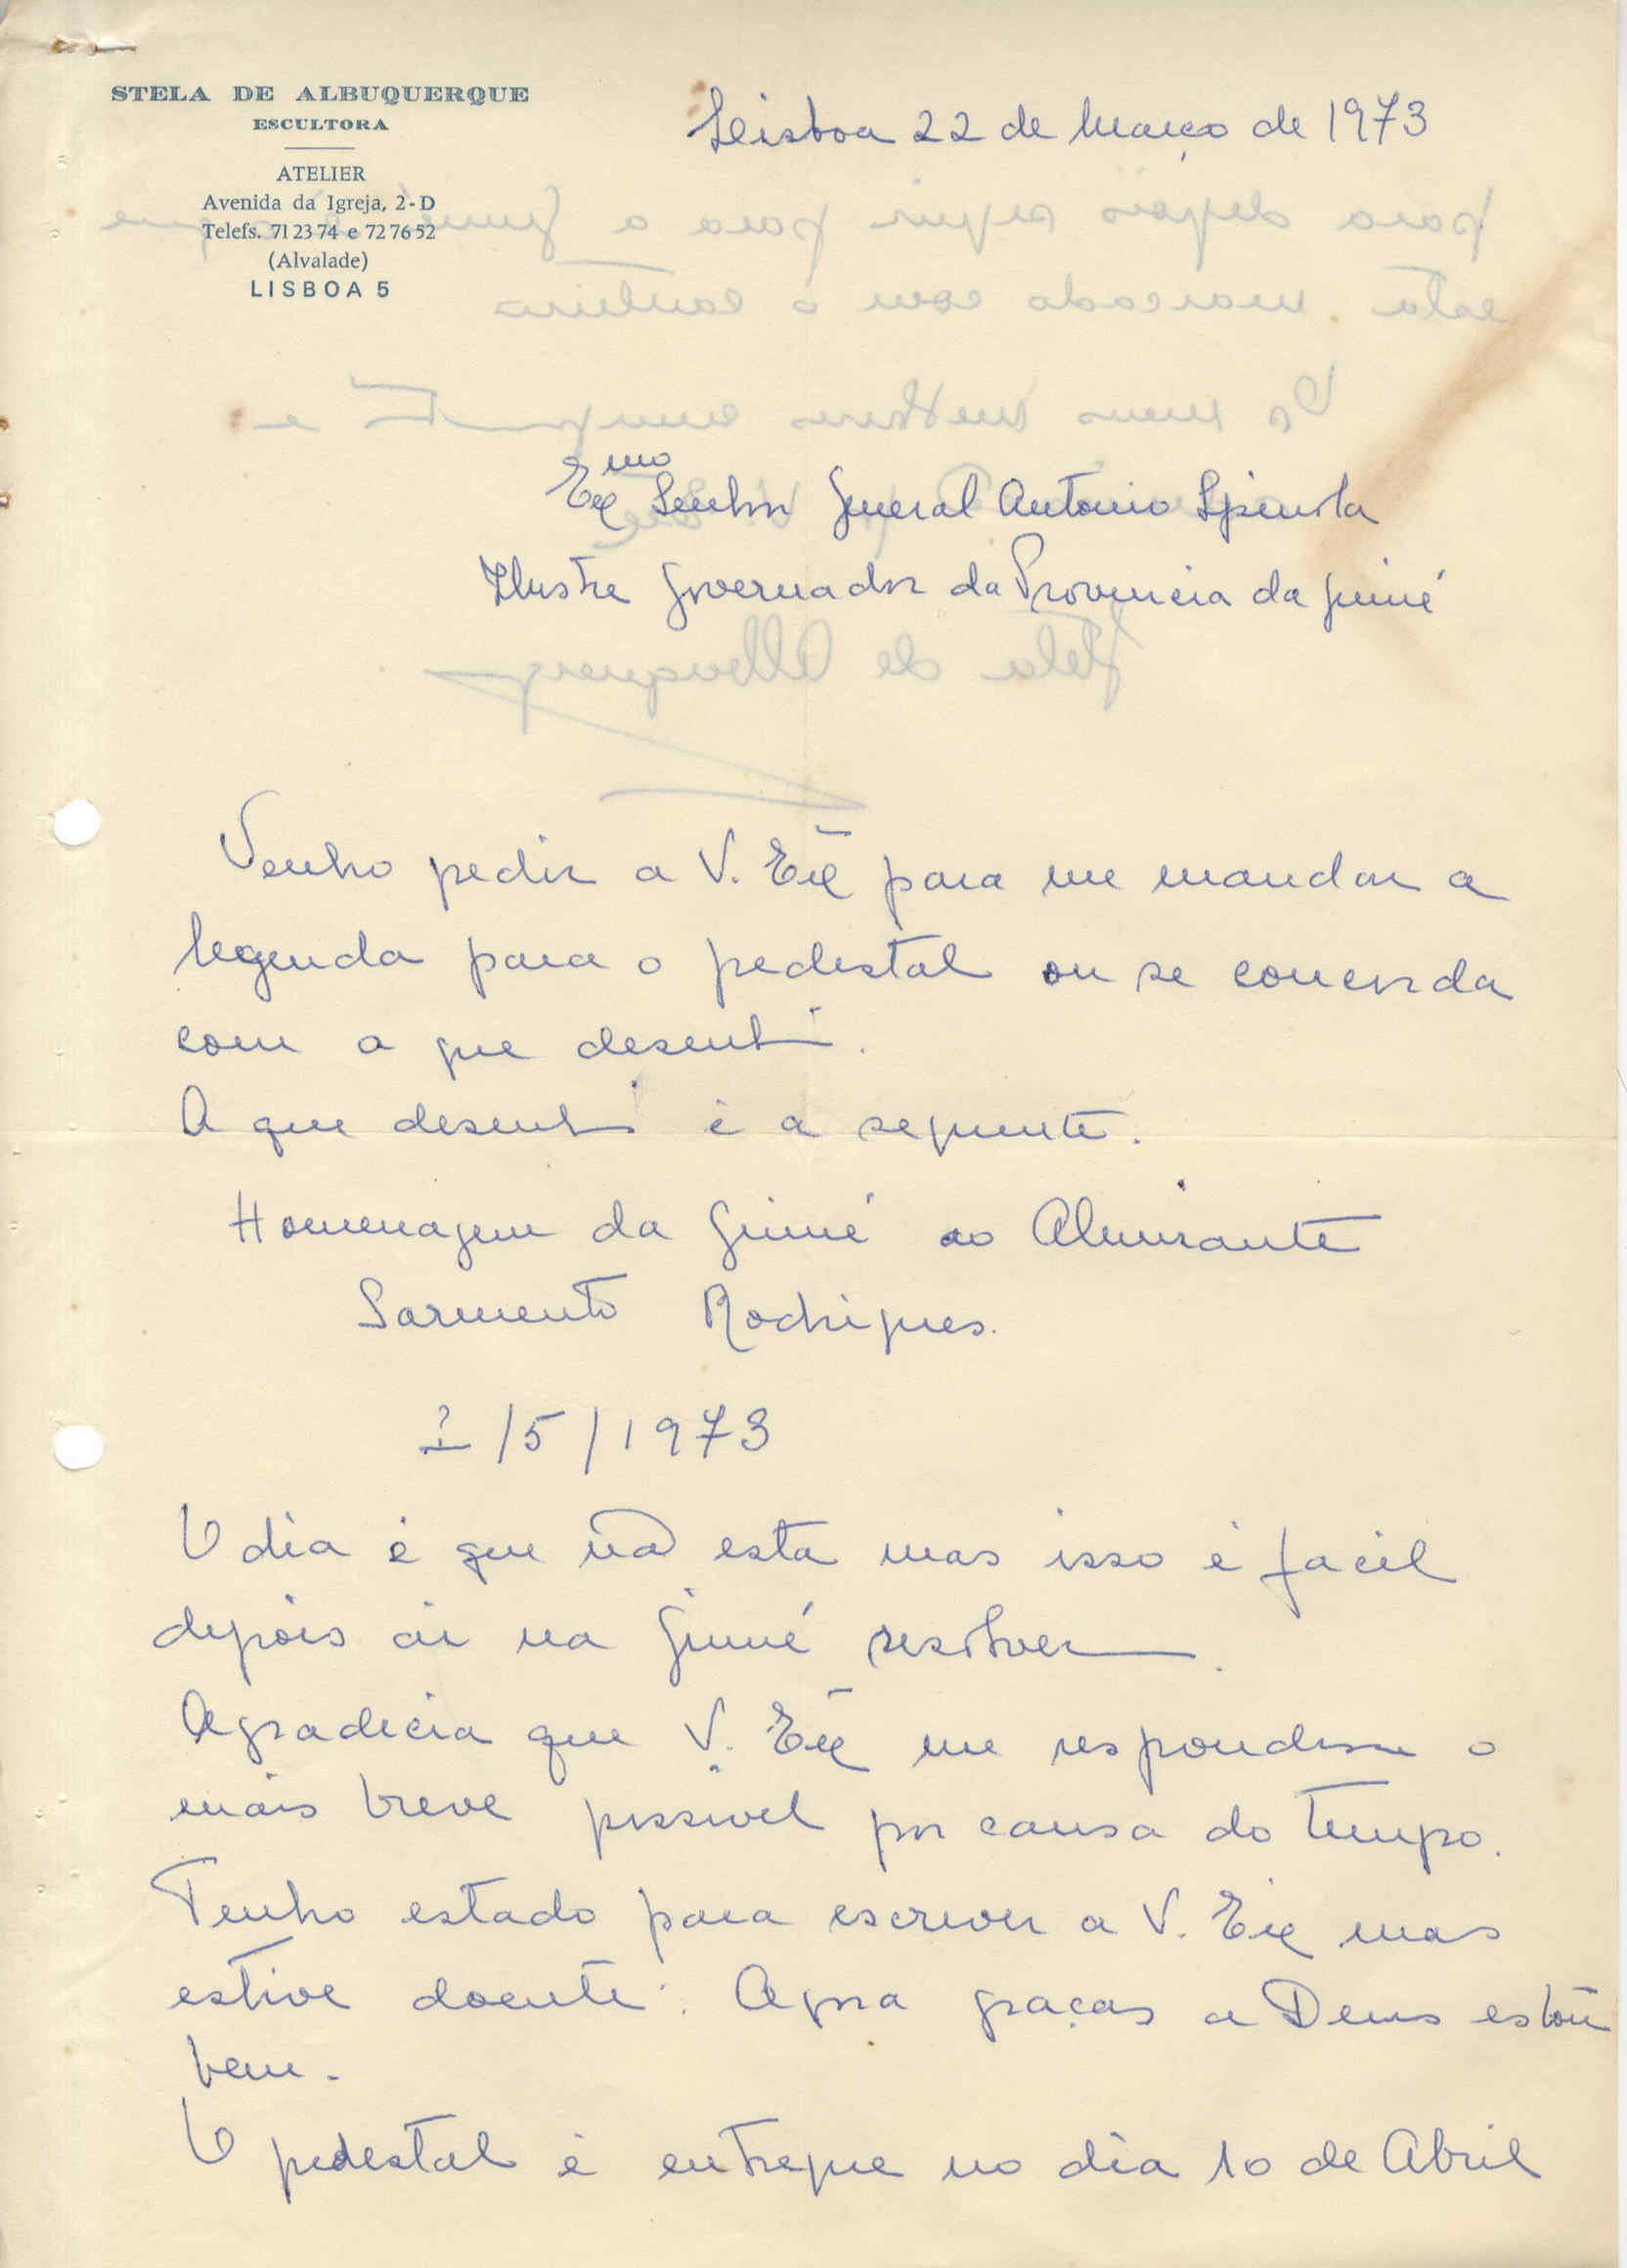 STELA DE ALBUQUERQUE
ESCULTORA
ATELIER
Avenida da Igreja, 2-D
Telefs. 71 23 74 e 72 76 52
(Alvalade)
LISBOA 5
Lisboa 22 de Março de 1973
Exmo Senhor General Antonio Spinola
Ilustre Governador da Provincia da Guiné
Venho pedir a V. Exª para me mandar a
legenda para o pedestal ou se concorda
com a que desenhei.
A que desenhei é a seguinte.
Homenagem da Guiné ao Almirante
Sarmento Rodrigues.
? /5/1973
O dia é que não esta mas isso é facil
depois ai na Guiné resolver.
Agradecia que V. Exª me respondesse o
mais breve possivel por causa do tempo.
Tenho estado para escrever a V. Exª mas
estive doente. Agora graças a Deus estou
bem.
O pedestal é entregue no dia 10 de Abril